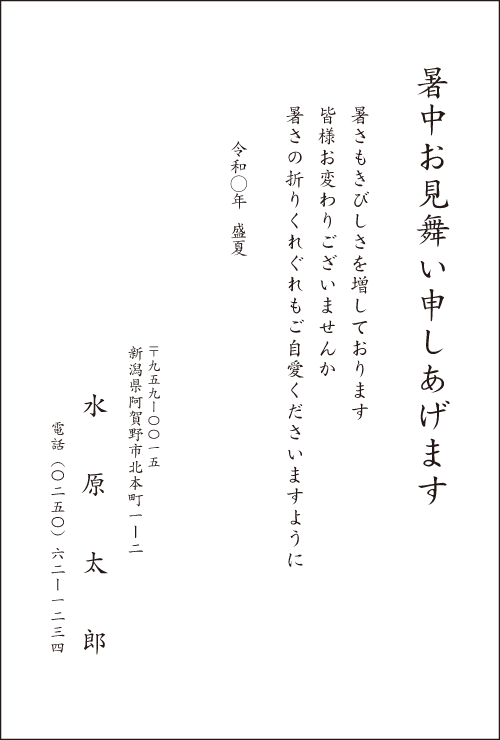 暑中お見舞い申しあげます
暑さもきびしさを増しております
皆様お変わりございませんか
暑さの折りくれぐれもご自愛くださいますように
令和〇年　盛夏
〒九五九―〇〇一五
新潟県阿賀野市北本町一―二
水原太郎
電話（〇二五〇）六二―一二三四